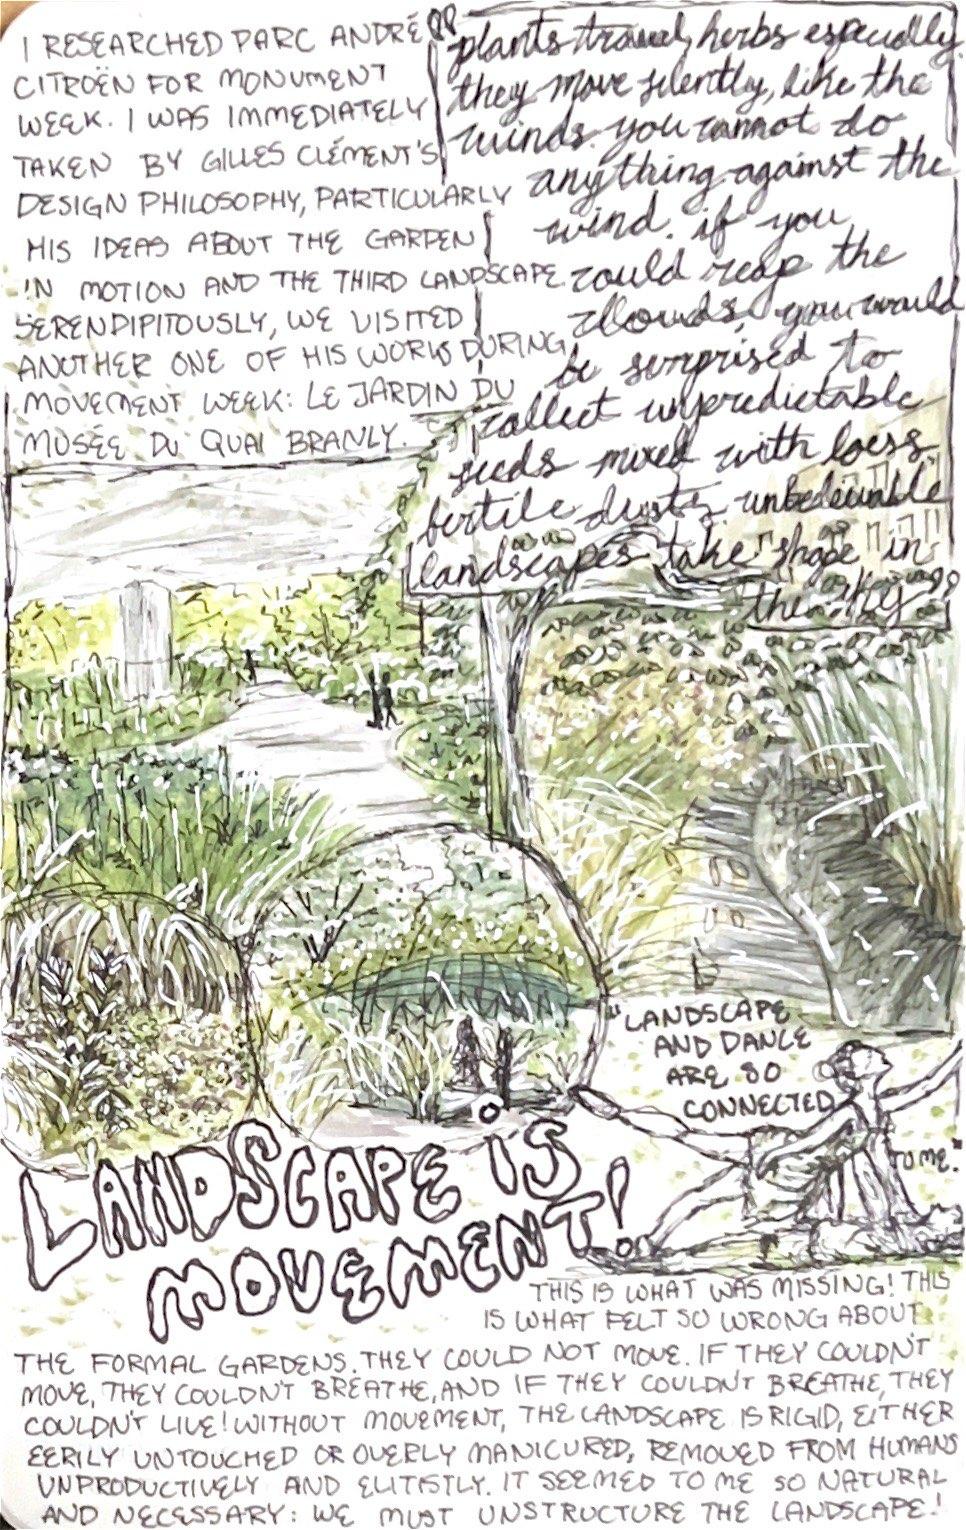 I RESEARCHED PARC ANDRÉ
CITROËN FOR MONUMENT
WEEK. I WAS IMMEDIATELY
TAKEN BY GILLES CLÉMENT'S
DESIGN PHILOSOPHY, PARTICULARLY
HIS IDEAS ABOUT THE GARDEN
IN MOTION AND THE THIRD LANDSCAPE
SERENDIPITOUSLY, WE VISITED
ANOTHER ONE OF HIS WORKS DURING
MOVEMENT WEEK: LE JARDIN DU
MUSÉE DU QUAI BRANLY.
"plants travel, herbs especially.
they move silently, like the
winds. you cannot do
anything against the
wind. if you
could reap the
clouds, you would
be surprised to
collect unpredictable
seeds mixed with loess,
fertile dusts, unbelievable
landscapes take shape in
the sky"
"LANDSCAPE
AND DANCE
ARE SO
CONNECTED
TO ME."
LANDSCAPE IS
MOVEMENT!
THIS IS WHAT WAS MISSING! THIS
IS WHAT FELT SO WRONG ABOUT
THE FORMAL GARDENS. THEY COULD NOT MOVE. IF THEY COULDN'T
MOVE, THEY COULDN'T BREATHE, AND IF THEY COULDN'T BREATHE, THEY
COULDN'T LIVE! WITHOUT MOVEMENT, THE LANDSCAPE IS RIGID, EITHER
EERILY UNTOUCHED OR OVERLY MANICURED, REMOVED FROM HUMANS
UNPRODUCTIVELY AND ELITISTLY. IT SEEMED TO ME SO NATURAL
AND NECESSARY: WE MUST UNSTRUCTURE THE LANDSCAPE!